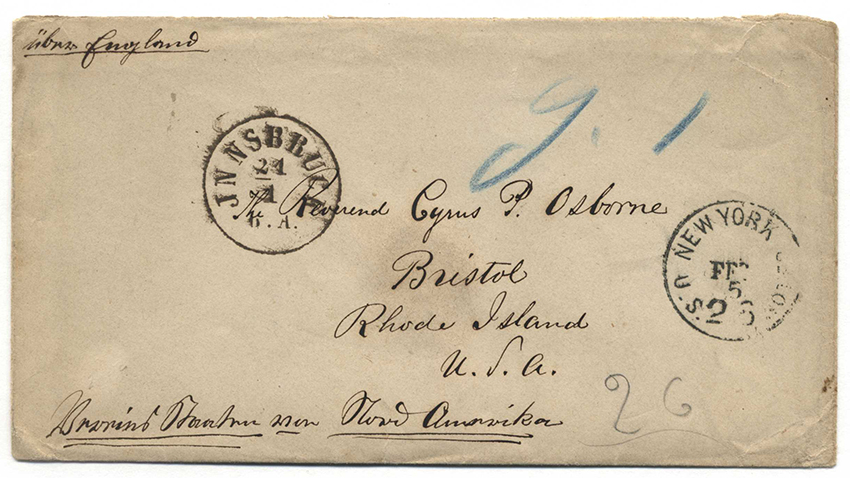 über England
9. 1
JNNSBRUCK
21
1
The Reverend Cyrus P. Osborne
NEW YORK
U.S.
FEB
5
26
Bristol
Rhode Island
U.S.A.
26
Vereins Staaten von Nord Amerika